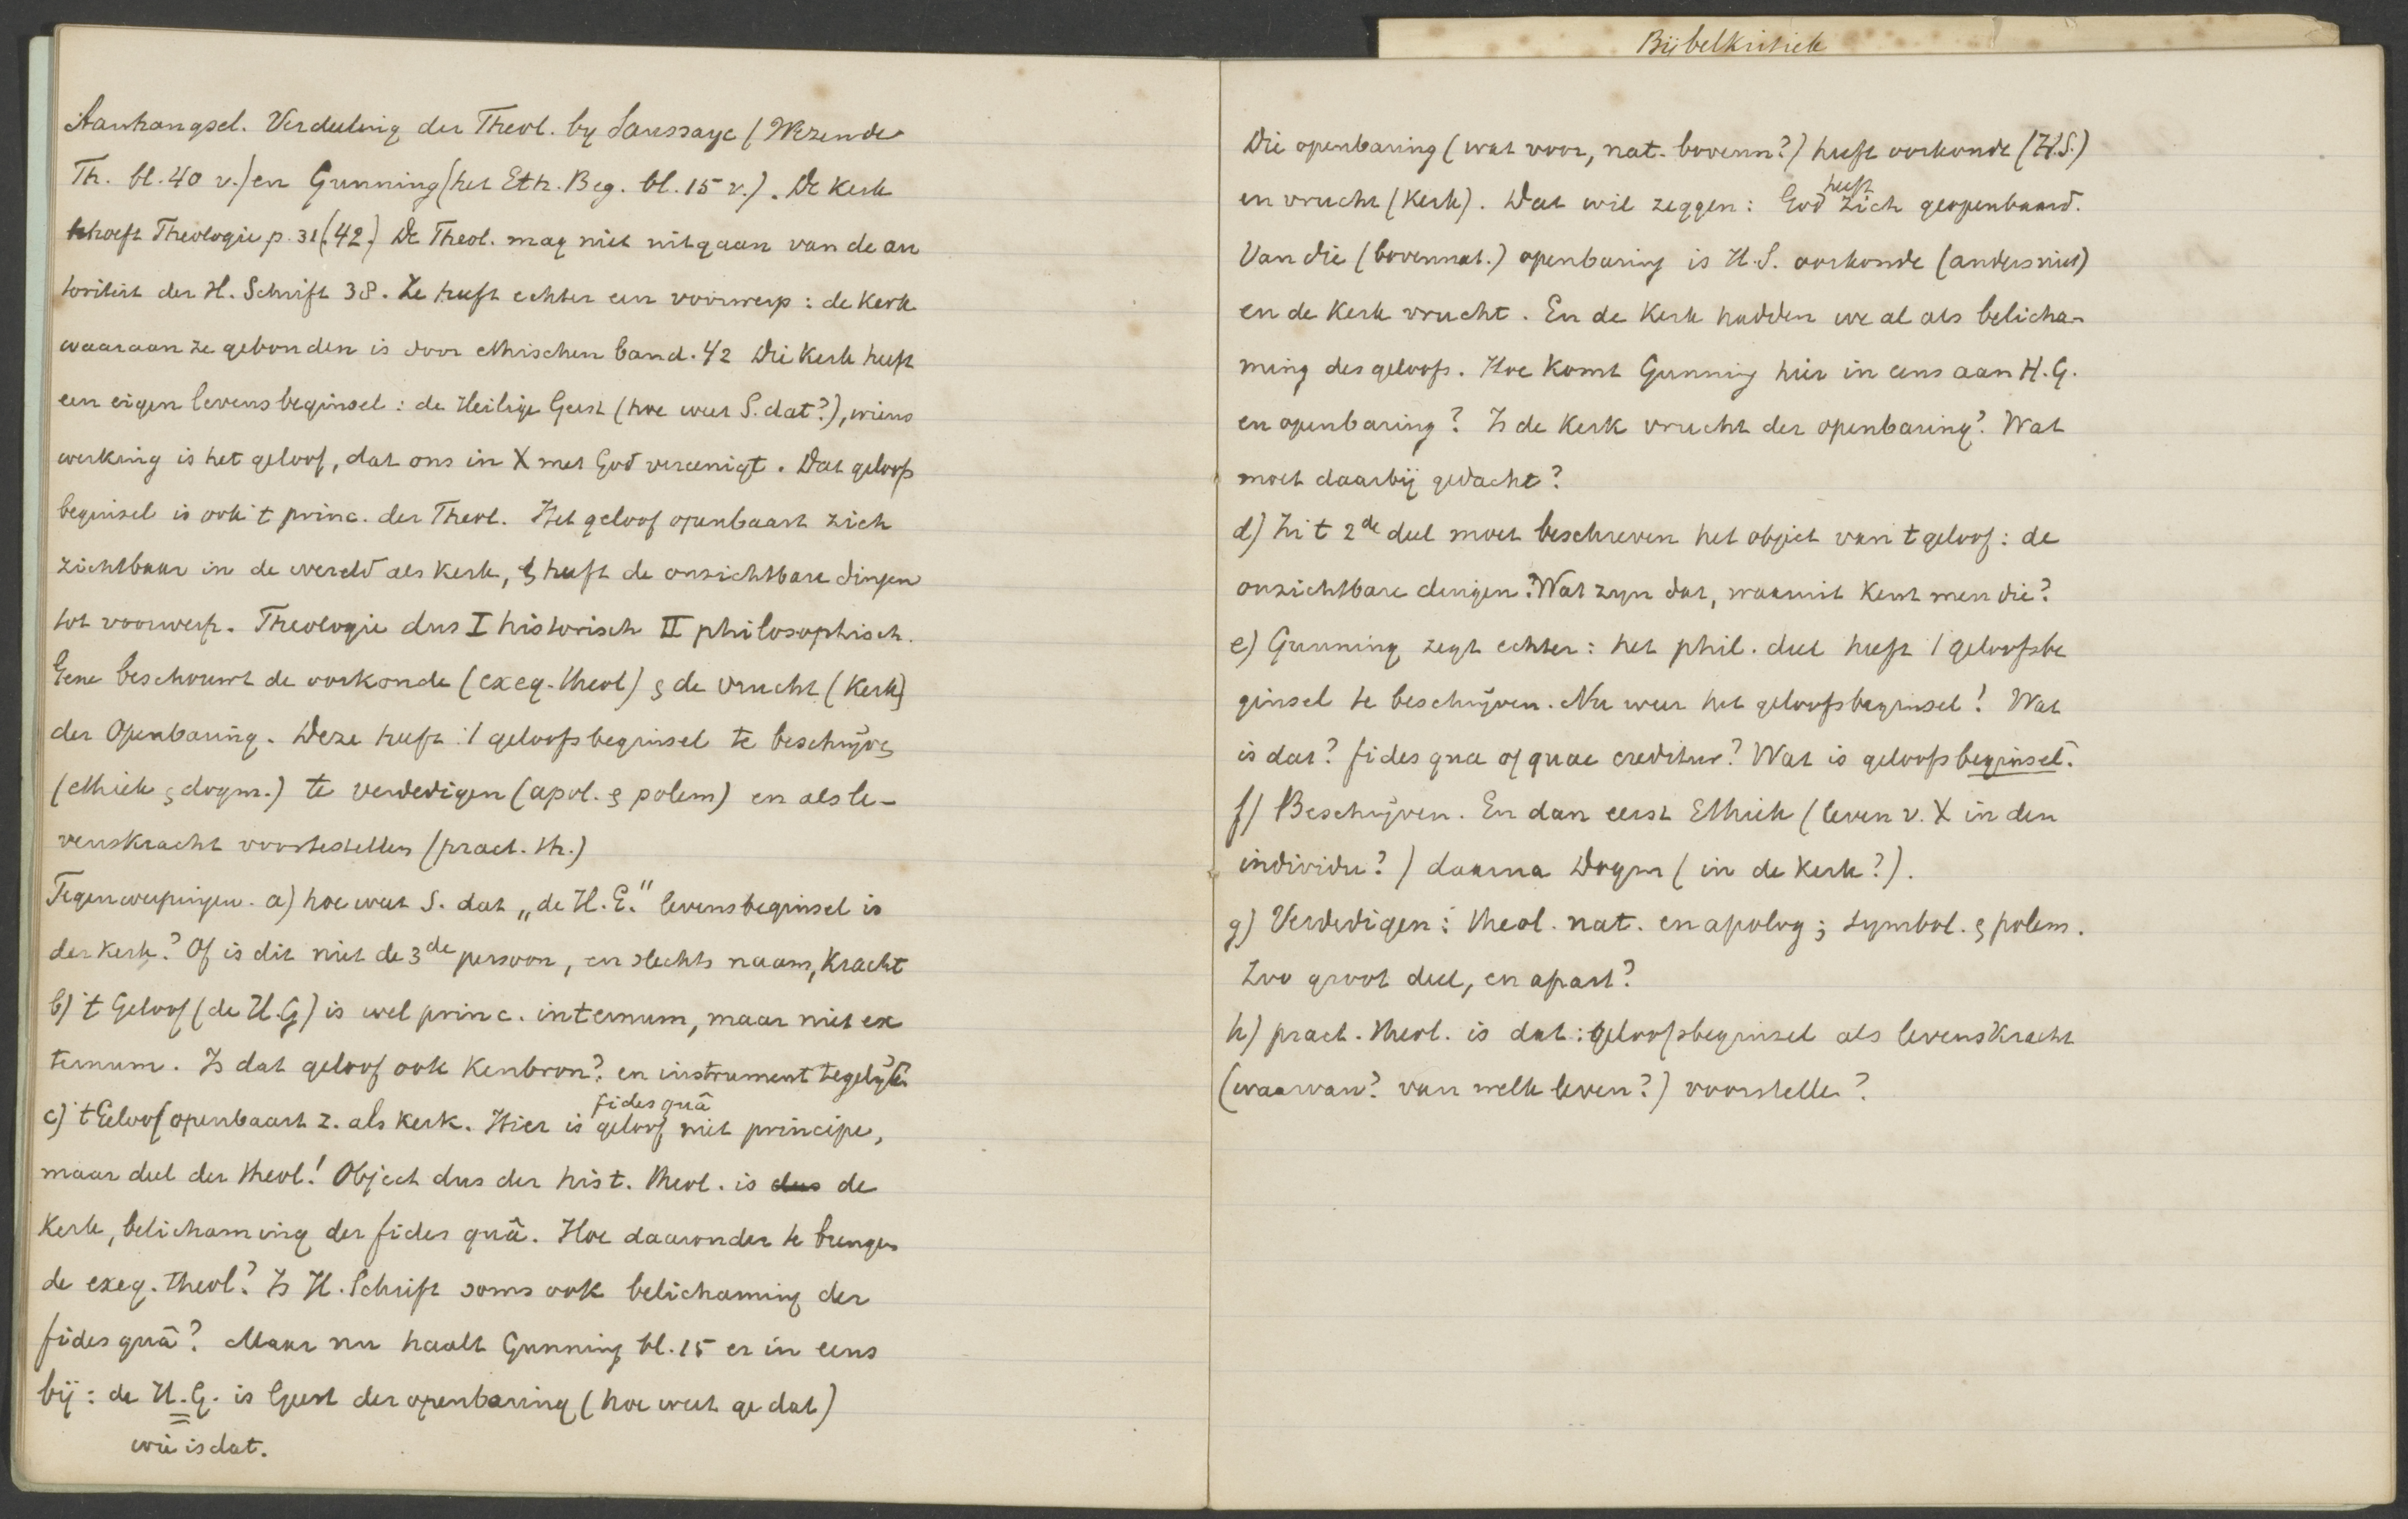 Aanhangsel. Verdeeling der Theol. by Saussaye (Wezen de
Th. bl. 40 v.) en Gunning (het Eth. Beg. bl. 15 v.). De Kerk
hoeft Theologie p. 31 (42.) De Theol. mag niet uitgaan van de au
toriteit der H. Schrift 38. Ze heeft echter een voorwerp: de Kerk
waaraan ze gebonden is door ethischen band. 42 Die Kerk heeft
een eigen levensbeginsel: de Heilige Geest (hoe weet S. dat?), wiens
werking is het geloof, dat ons in X met God vereenigt. Dat geloofs
beginsel is ook 't princ. der Theol. Het geloof openbaart zich
zichtbaar in de wereld als Kerk, & heeft de onzichtbare dingen
tot voorwerp. Theologie dus I historisch II philosophisch.
Gene beschouwt de oorkonde (exeg. theol) & de vrucht (Kerk)
der Openbaring. Deze heeft 't geloofsbeginsel te beschrijven
(ethiek & dogm.) te verdedigen (apol. & polem) en als le-
venskracht voortestellen (pract. th.)
Tegenwerpingen. a) hoe weet S. dat „de H. G." levensbeginsel is
der Kerk? Of is dit niet de 3de persoon, en slechts naam, Kracht
b) 't Geloof (de H.G) is wel princ. internum, maar niet ex
ternum. Is dat geloof ook Kenbron? en instrument tegelijk?
c) 't Geloof openbaart z. als Kerk. Hier is geloof niet principe,
fides quâ
maar deel der theol! Object dus der hist. theol. is dus de
Kerk, belichaming der fides quâ. Hoe daaronder te brengen
de exeg. theol? Is H. Schrift soms ook belichaming der
fides quâ? Maar nu haalt Gunning bl. 15 er in eens
bij: de H. G. is Geest der openbaring (hoe weet ge dat)
wie is dat.
Bijbelkritiek
Die openbaring (wat voor, nat. bovenn?) heeft oorkonde (H.S.)
en vrucht (Kerk). Dat wil zeggen: God heeft zich geopenbaard.
Van die (bovennat.) openbaring is H.S. oorkonde (anders niet)
en de Kerk vrucht. En de Kerk hadden we al als belicha-
ming des geloofs. Hoe komt Gunning hier in eens aan H. G.
en openbaring? Is de Kerk vrucht der openbaring? Wat
moet daarbij gedacht?
d) In 't 2de deel moet beschreven het object van 't geloof: de
onzichtbare dingen? Wat zyn dat, waaruit Kent men die?
e) Gunning zegt echter: het phil. deel heeft 't geloofsbe
ginsel te beschrijven. Nu weer het geloofsbeginsel! Wat
is dat? fides qua of quae creditur? Wat is geloofsbeginsel.
f) Beschrijven. En dan eerst Ethiek (leven v. X in den
individu?) daarna Dogm (in de Kerk?).
g) Verdedigen: theol. nat. en apolog; symbol. & polem.
Zoo groot deel, en apart?
h) pract. theol. is dat: geloofsbeginsel als levenskracht
(waarvan? van welk leven?) voorstellen?